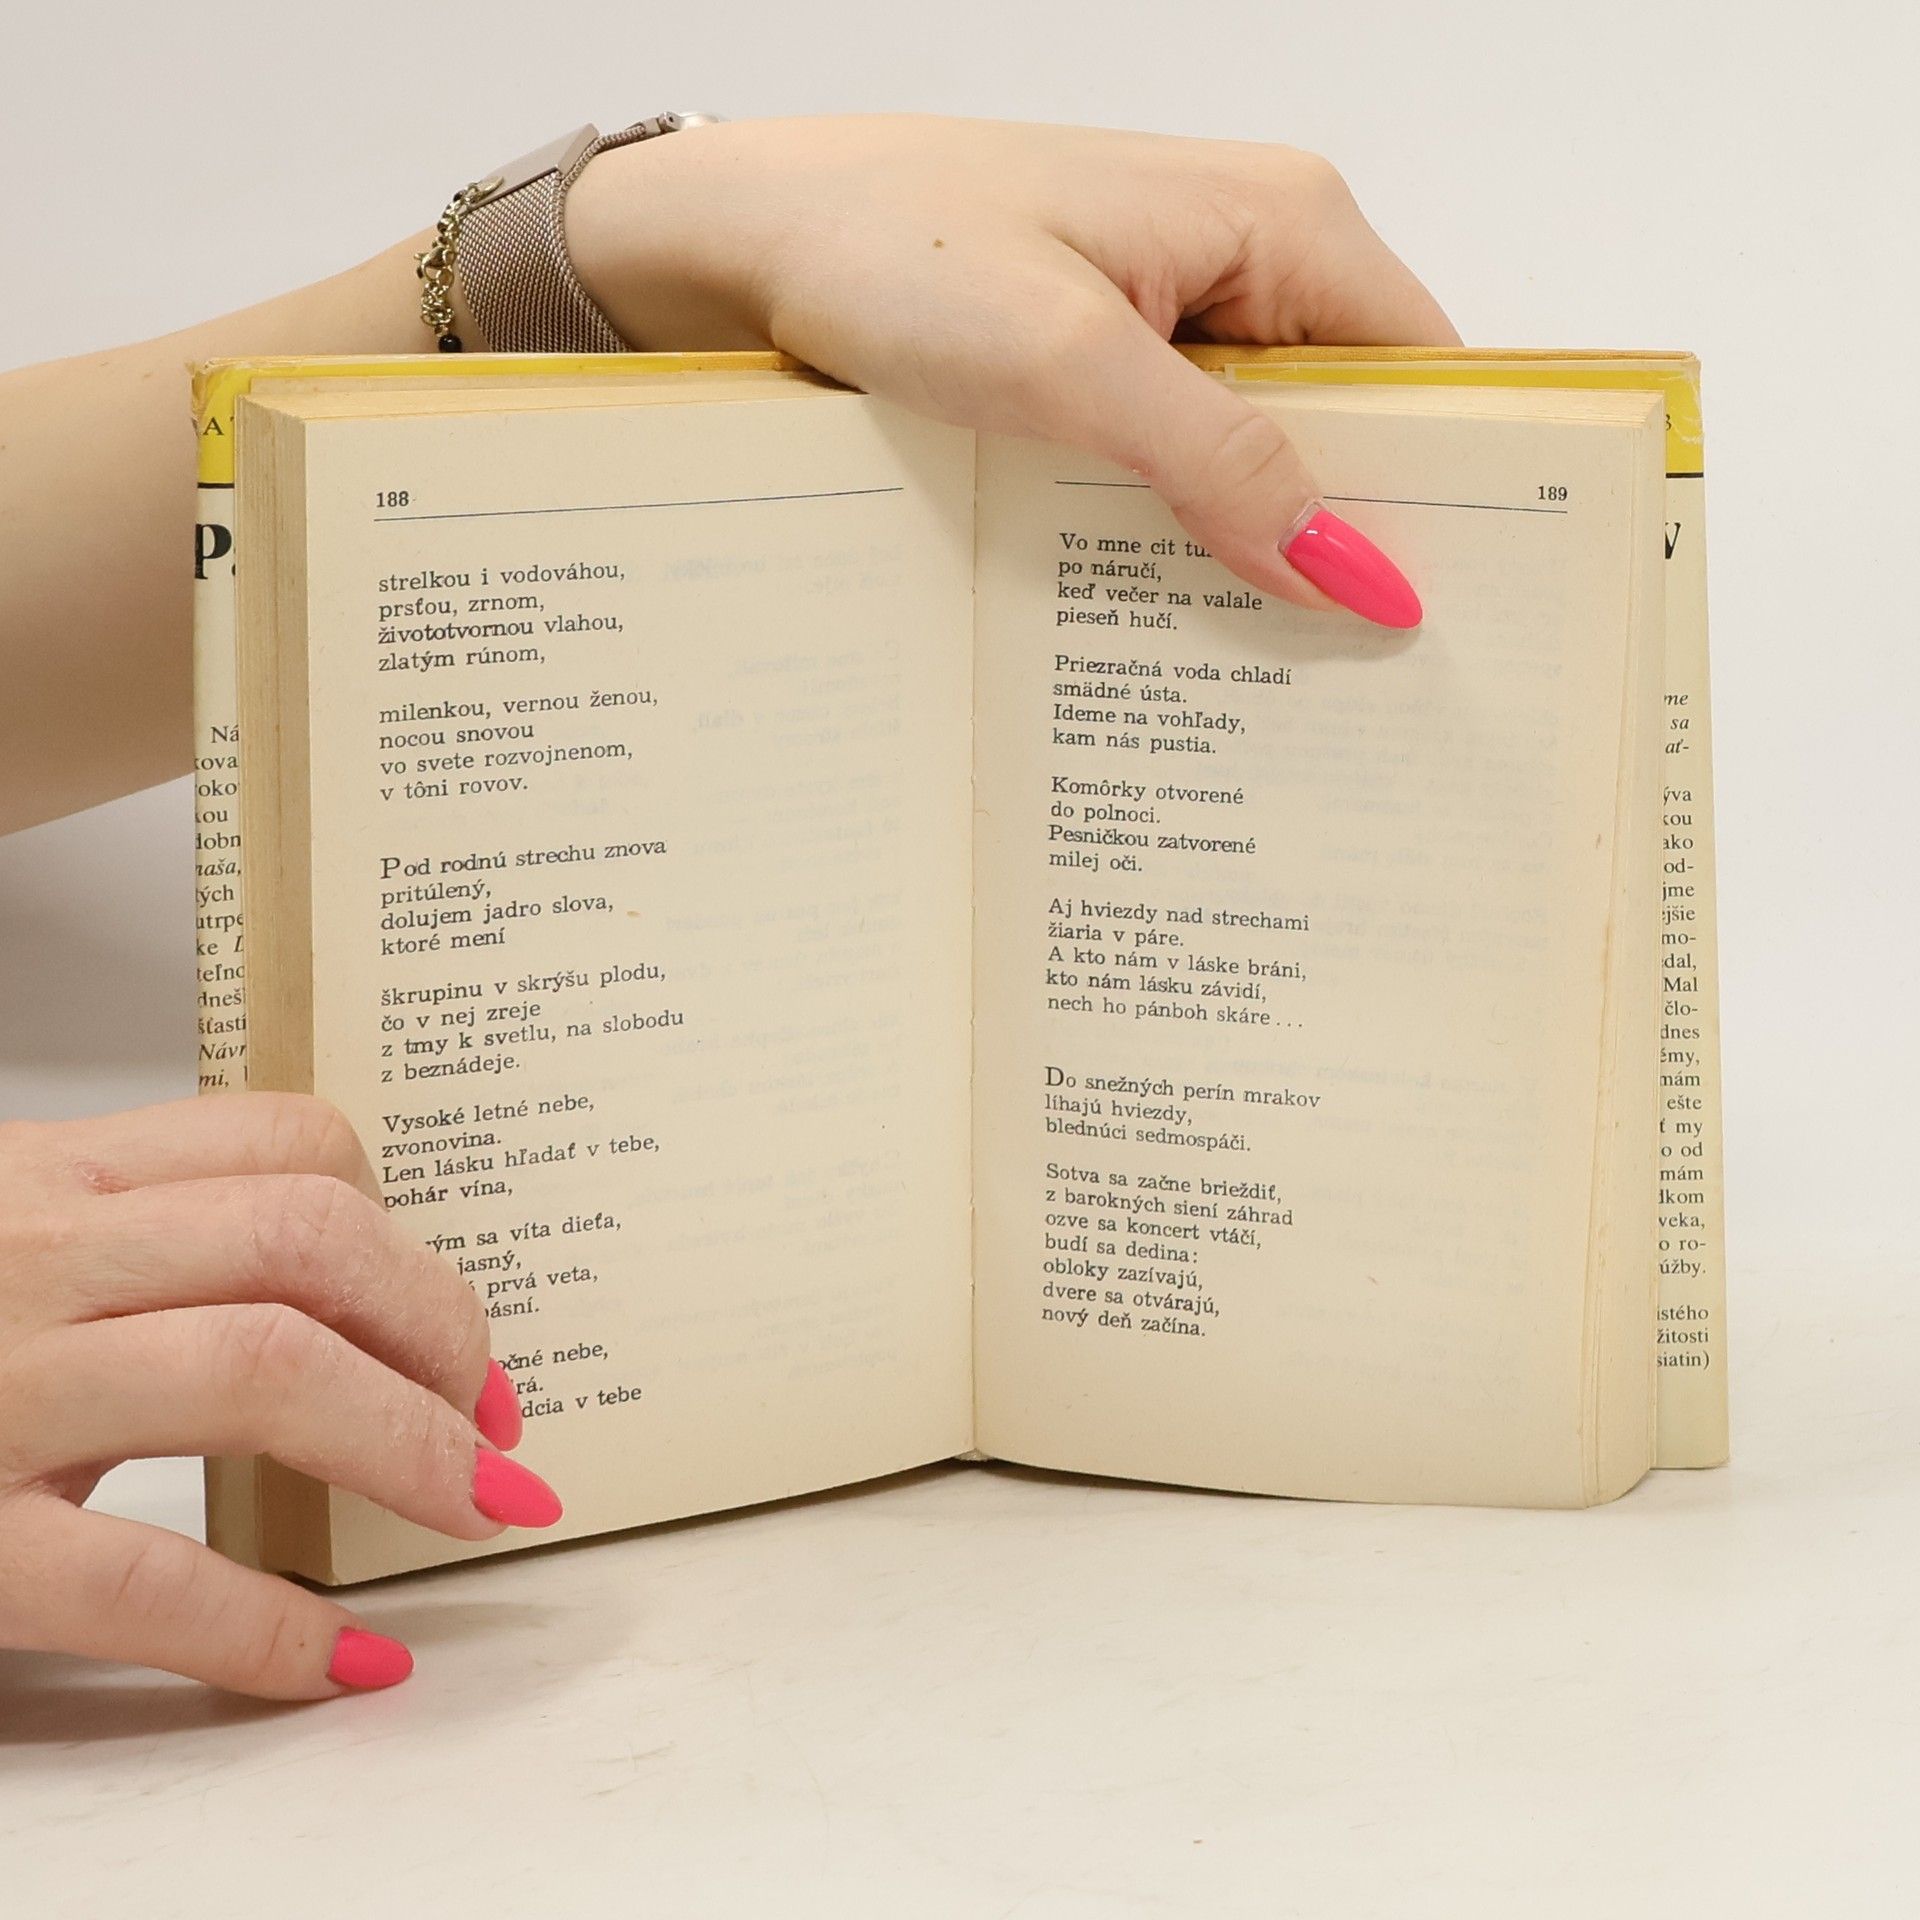 188
strelkou i vodováhou,
prsťou, zrnom,
životvornou vlahou,
zlatým rúnom,
milenkou, vernou ženou,
nocou snovou
vo svete rozvojnenom,
v tôni rovov.
Pod rodnú strechu znova
pritúlený,
dolujem jadro slova,
ktoré mení
škrupinu v skrýšu plodu,
čo v nej zreje
z tmy k svetlu, na slobodu
z beznádeje.
Vysoké letné nebe,
zvonovina.
Len lásku hľadať v tebe,
pohár vína,
sa víta dieťa,
jasný,
prvá veta,
nebe,
v tebe
189
Vo mne cit
po náručí,
keď večer na valale
pieseň hučí.
Priezračná voda chladí
smädné ústa.
Ideme na vohľady,
kam nás pustia.
Komôrky otvorené
do polnoci.
Pesničkou zatvorené
milej oči.
Aj hviezdy nad strechami
žiaria v páre.
A kto nám v láske bráni,
kto nám lásku závidí,
nech ho pánboh skáre...
Do snežných perín mrakov
líhajú hviezdy,
blednúci sedmospáči.
Sotva sa začne brieždiť,
z barokných siení záhrad
ozve sa koncert vtáčí,
budí sa dedina:
obloky zazívajú,
dvere sa otvárajú,
nový deň začína.
sa
ako
Mal
dnes
ešte
my
od
mám